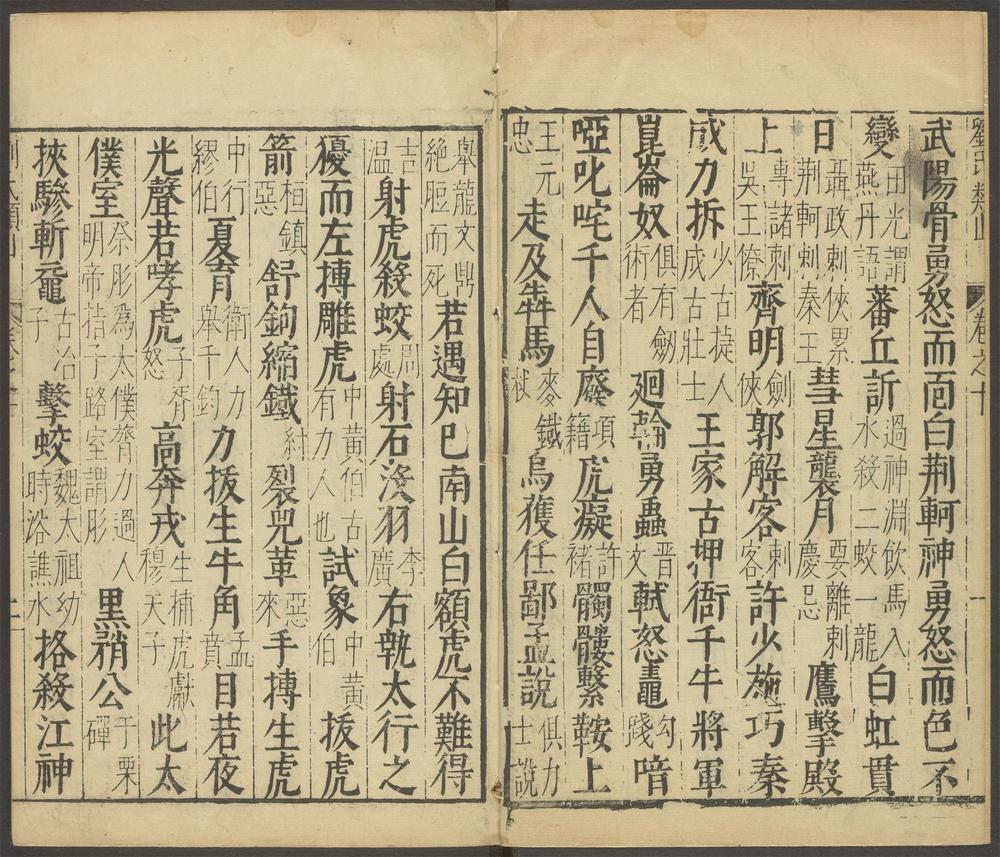 劉氏類山 卷之十 一
武陽骨勇怒而面白荆軻神勇怒而色不
變田光謂燕丹語蕃丘訢過神淵飲馬入水殺二蛟一龍白虹貫
日聶政刺俠累荆軻刺秦王彗星襲月要離刺慶忌鷹擊殿
上專諸刺吳王僚齊明劍俠郭解客刺客許少施巧秦
成力拆少古捷人成古壯士王家古押衙千牛將軍
崑崙奴俱有劒術者廻輪勇蟲晋文軾怒鼃勾踐喑
啞叱咤千人自廢項籍虎癡許褚髑髏繫鞍上
王元忠走及犇馬麥鐵杖烏獲任鄙孟說俱力士說
舉龍文鼎絶脰而死若遇知己南山白額虎不難得
吉温射虎殺蛟周處射石沒羽李廣右執太行之
獶而左搏雕虎中黄伯古有力人也試象中黄伯扳虎
箭桓鎮惡舒鉤縮鐵紂裂兕革惡來手搏生虎
中行繆伯夏育衛人力舉千鈞力拔生牛角孟賁目若夜
光聲若哮虎子胥怒高奔戎生捕虎獻穆天子此太
僕室祭肜爲太僕膂力過人明帝指子路室謂肜黒矟公于栗磾
挾驂斬黿古冶子擊蛟魏太祖幼時浴譙水挌殺江神